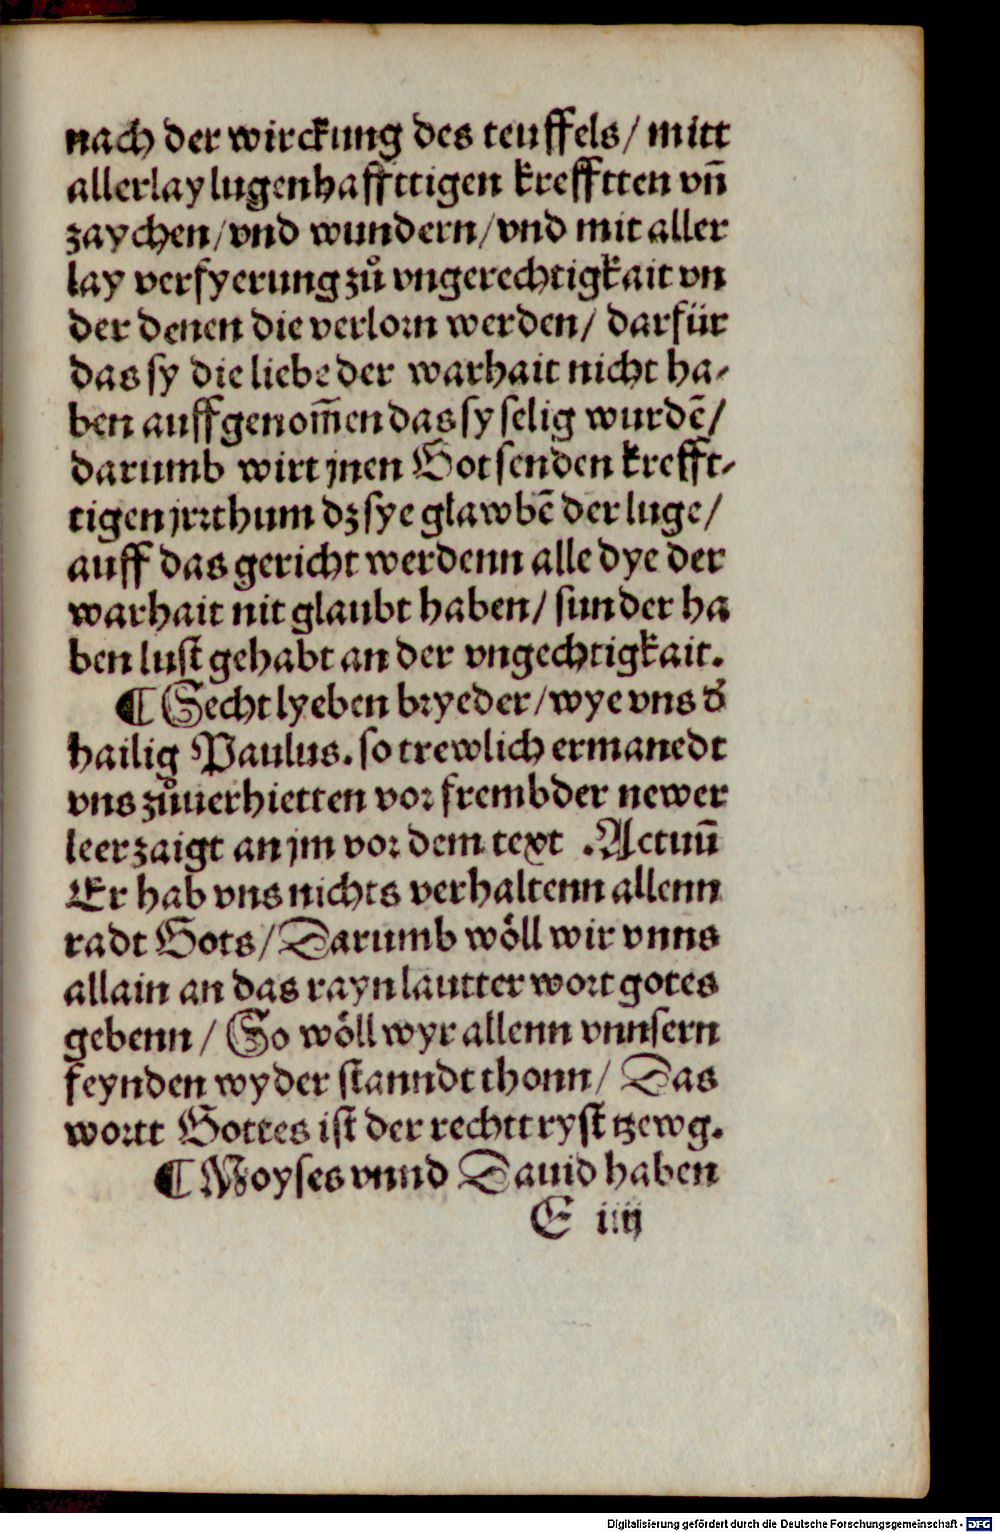 nach der wirckung des teuffels/ mitt
allerlay lugenhaffttigen krefftten vn̄
zaychen/vnd wundern/vnd mit aller
lay verfyerung zů vngerechtigkait vn
der denen die verlorn werden/ darfür
das sy die liebe der warhait nicht ha-
ben auffgenom̄en das sy selig wurdē/
darumb wirt jnen Got senden krefft-
tigen jrrthum dz sye glawbē der luge/
auff das gericht werdenn alle dye der
warhait nit glaubt haben/ sunder ha
ben lust gehabt an der vngechtigkait.
¶ Secht lyeben bryeder/wye vns d̓
hailig Paulus. so trewlich ermanedt
vns zůuerhietten vor frembder newer
leer zaigt an jm vor dem text .Actuū
Er hab vns nichts verhaltenn allenn
radt Gots/ Darumb wöll wir vnns
allain an das rayn lautter wort gotes
gebenn / So wöll wyr allenn vnnsern
feynden wyder stanndt thonn/ Das
wortt Gottes ist der rechtt ryst tzewg.
¶ Moyses vnnd Dauid haben
E iiij
Digitalisierung gefördert durch die Deutsche Forschungsgemeinschaft - DFG